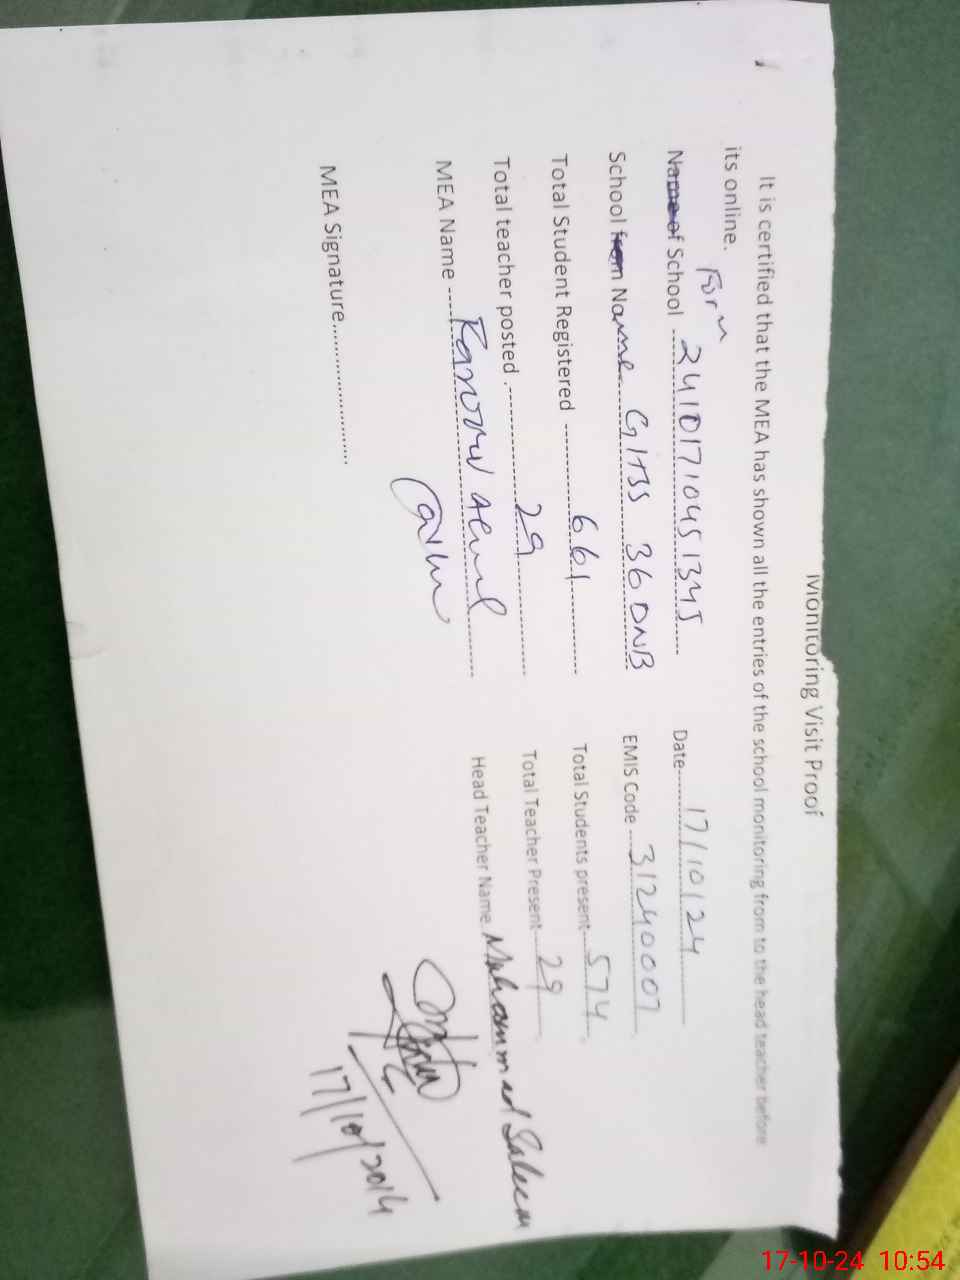 Monitoring Visit Proof
It is certified that the MEA has shown all the entries of the school monitoring from to the head teacher before
its online.
Form
Name of School 24101710451345 Date 17/10/24
School from Name GHSS 36 DNB EMIS Code 31240007
Total Student Registered 661 Total Students present 574
Total teacher posted 29 Total Teacher Present 29
MEA Name Head Teacher Name Muhammad Saleem
MEA Signature
17/10/2014
17-10-24 10:54